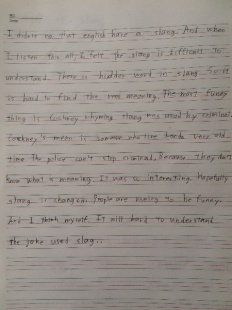 I didn't no that english have a slang. And when
I listen this all, I felt the slang is difficult to
understand. There is hidden word in slang. So it
is hard to find the real meaning. The most funny
thing is Cockney rhyming slang was used by criminal.
Cockney's mean is someone who time Bells. Very old
time the police can't stop criminal, because they don't
know what's meaning. It was so interesting. Hopefully
slang is changing. People are using to be funny.
And I think myself It will hard to understand
the joke used slag..